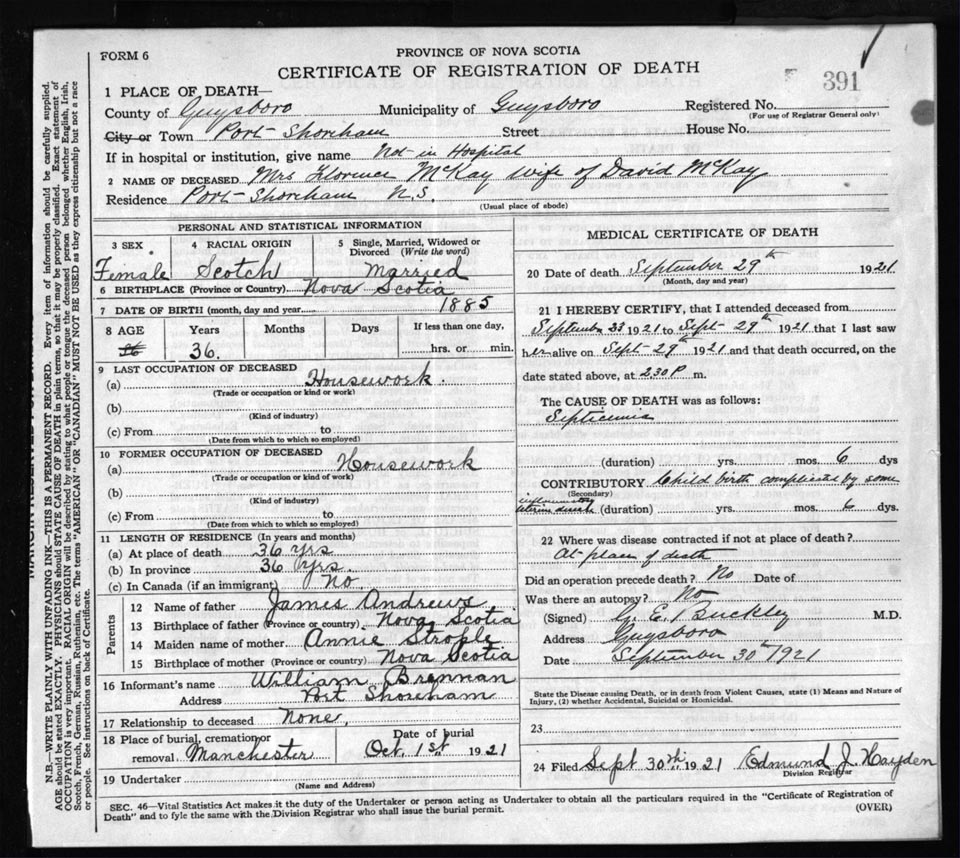 FORM 6
PROVINCE OF NOVA SCOTIA
CERTIFICATE OF REGISTRATION OF DEATH
391
1 PLACE OF DEATH—
County of Guysboro Municipality of Guysboro Registered No.
(For use of Registrar General only)
City or Town Port Shoreham Street House No.
If in hospital or institution, give name Not in Hospital
2 NAME OF DECEASED Mrs Florence McKay wife of David McKay
Residence Port Shoreham N.S.
(Usual place of abode)
PERSONAL AND STATISTICAL INFORMATION
3 SEX 4 RACIAL ORIGIN 5 Single, Married, Widowed or Divorced (Write the word)
Female Scotch Married
6 BIRTHPLACE (Province or Country) Nova Scotia
7 DATE OF BIRTH (month, day and year) 1885
8 AGE Years Months Days If less than one day,
36 36. hrs. or min.
9 LAST OCCUPATION OF DECEASED
(a) Housework.
(Trade or occupation or kind or work)
(b)
(Kind of industry)
(c) From to
(Date from which to which so employed)
10 FORMER OCCUPATION OF DECEASED
(a) Housework
(Trade or occupation or kind of work)
(b)
(Kind of industry)
(c) From to
(Date from which to which so employed)
11 LENGTH OF RESIDENCE (In years and months)
(a) At place of death 36 yrs
(b) In province 36 yrs.
(c) In Canada (if an immigrant) No
Parents
12 Name of father James Andrews
13 Birthplace of father (Province or country) Nova Scotia
14 Maiden name of mother Annie Strople
15 Birthplace of mother (Province or country) Nova Scotia
16 Informant's name William Brennan
Address Port Shoreham
17 Relationship to deceased None.
18 Place of burial, cremation or removal Manchester Date of burial Oct. 1st 1921
19 Undertaker
(Name and Address)
MEDICAL CERTIFICATE OF DEATH
20 Date of death September 29th 1921
(Month, day and year)
21 I HEREBY CERTIFY, that I attended deceased from
September 23 1921 to Sept 29th 1921 that I last saw
her alive on Sept 29th 1921 and that death occurred, on the
date stated above, at 230 P m.
The CAUSE OF DEATH was as follows:
Septicemia
(duration) yrs. mos. 6 dys
CONTRIBUTORY Child birth complicated by some
(Secondary)
inflammatory
(duration) yrs. mos. 6 dys.
22 Where was disease contracted if not at place of death?
At place of death
Did an operation precede death? No Date of
Was there an autopsy? No
(Signed) G. E. Buckley M.D.
Address Guysboro
Date September 30th 1921
State the Disease causing Death, or in death from Violent Causes, state (1) Means and Nature of
Injury, (2) whether Accidental, Suicidal or Homicidal.
23
24 Filed Sept 30th. 1921 Edmund J. Hayden
Division Registrar
SEC. 46—Vital Statistics Act makes it the duty of the Undertaker or person acting as Undertaker to obtain all the particulars required in the "Certificate of Registration of
Death" and to fyle the same with the Division Registrar who shall issue the burial permit. (OVER)
N.B.—WRITE PLAINLY WITH UNFADING INK—THIS IS A PERMANENT RECORD. Every item of information should be carefully supplied.
AGE should be stated EXACTLY. PHYSICIANS should STATE CAUSE OF DEATH in plain terms, so that it may be properly classified. Exact statement of
OCCUPATION is very important. RACIAL ORIGIN will be described by stating to what people or tongue the deceased person belonged whether English, Irish,
Scotch, French, German, Russian, Ruthenian, etc. The terms "AMERICAN" OR "CANADIAN" MUST NOT BE USED as they express citizenship but not a race
or people. See instructions on back of Certificate.